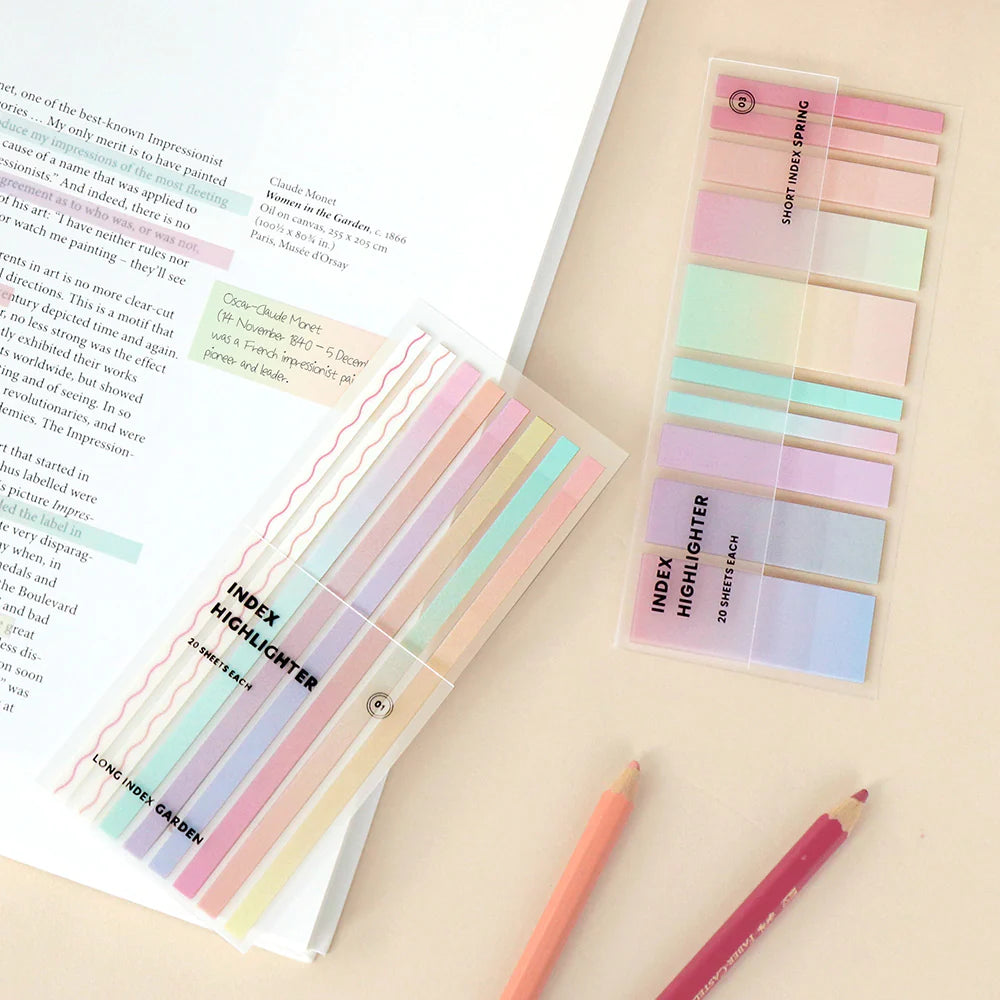 net, one of the best-known Impressionist
ories … My only merit is to have painted
oduce my impressions of the most fleeting
cause of a name that was applied to
essionists." And indeed, there is no
agreement as to who was, or was not,
of his art: "I have neither rules nor
or watch me painting – they'll see
rents in art is no more clear-cut
l directions. This is a motif that
entury depicted time and again.
r, no less strong was the effect
tly exhibited their works
ts worldwide, but showed
ing and of seeing. In so
revolutionaries, and were
demies. The Impression-
ort that started in
hus labelled were
s picture Impres-
ded the label in
te very disparag-
ay when, in
medals and
the Boulevard
and bad
great
less dis-
on soon
" was
at
Claude Monet
Women in the Garden, c. 1866
Oil on canvas, 255 x 205 cm
(100½ x 80¾ in.)
Paris, Musée d'Orsay
Oscar-Claude Monet
(14 November 1840 – 5 Decem
was a French impressionist pai
pioneer and leader.
INDEX
HIGHLIGHTER
20 SHEETS EACH
01
LONG INDEX GARDEN
03
SHORT INDEX SPRING
INDEX
HIGHLIGHTER
20 SHEETS EACH
FABER-CASTELL